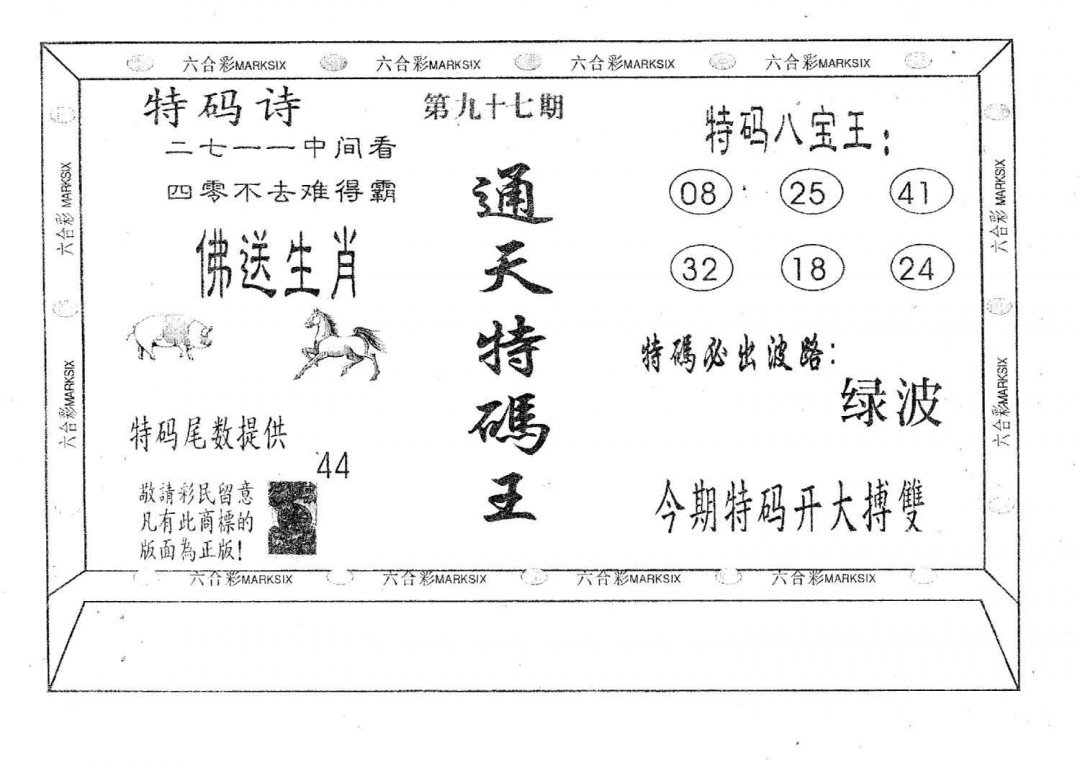 六合彩MARKSIX 六合彩MARKSIX 六合彩MARKSIX 六合彩MARKSIX
特码诗
二七一一中间看
四零不去难得霸
佛送生肖
特码尾数提供
44
敬請彩民留意
凡有此商標的
版面為正版!
第九十七期
通天特碼王
特码八宝王:
08 25 41
32 18 24
特碼必出波路:
绿波
今期特码开大搏雙
六合彩MARKSIX
六合彩MARKSIX
六合彩MARKSIX
六合彩MARKSIX
六合彩MARKSIX 六合彩MARKSIX 六合彩MARKSIX 六合彩MARKSIX